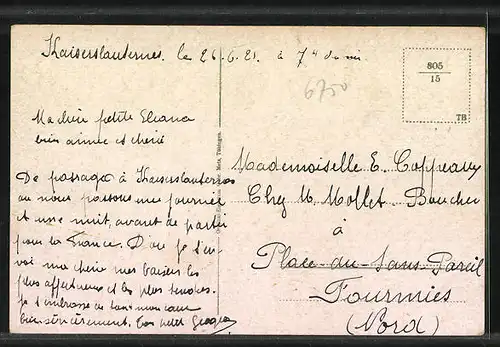 Kaiserslauternes. le 26.6.21. à 7h du
6700
805
15
TB
Ma chère petite Eleana
bien aimée et chérie
De passage à Kaiserslauternes
où nous passons une journée
et une nuit, avant de partir
pour la France. D'où je t'en
voi ma chérie mes baisers les
plus affectueux et les plus tendres.
Je t'embrasse de tout mon cœur
bien sincèrement. Ton petit Georges
Mademoiselle E. Coppeaux
Chez M. Mollet Boucher
à
Place-du-Sans-Pareil
Fourmies
(Nord)